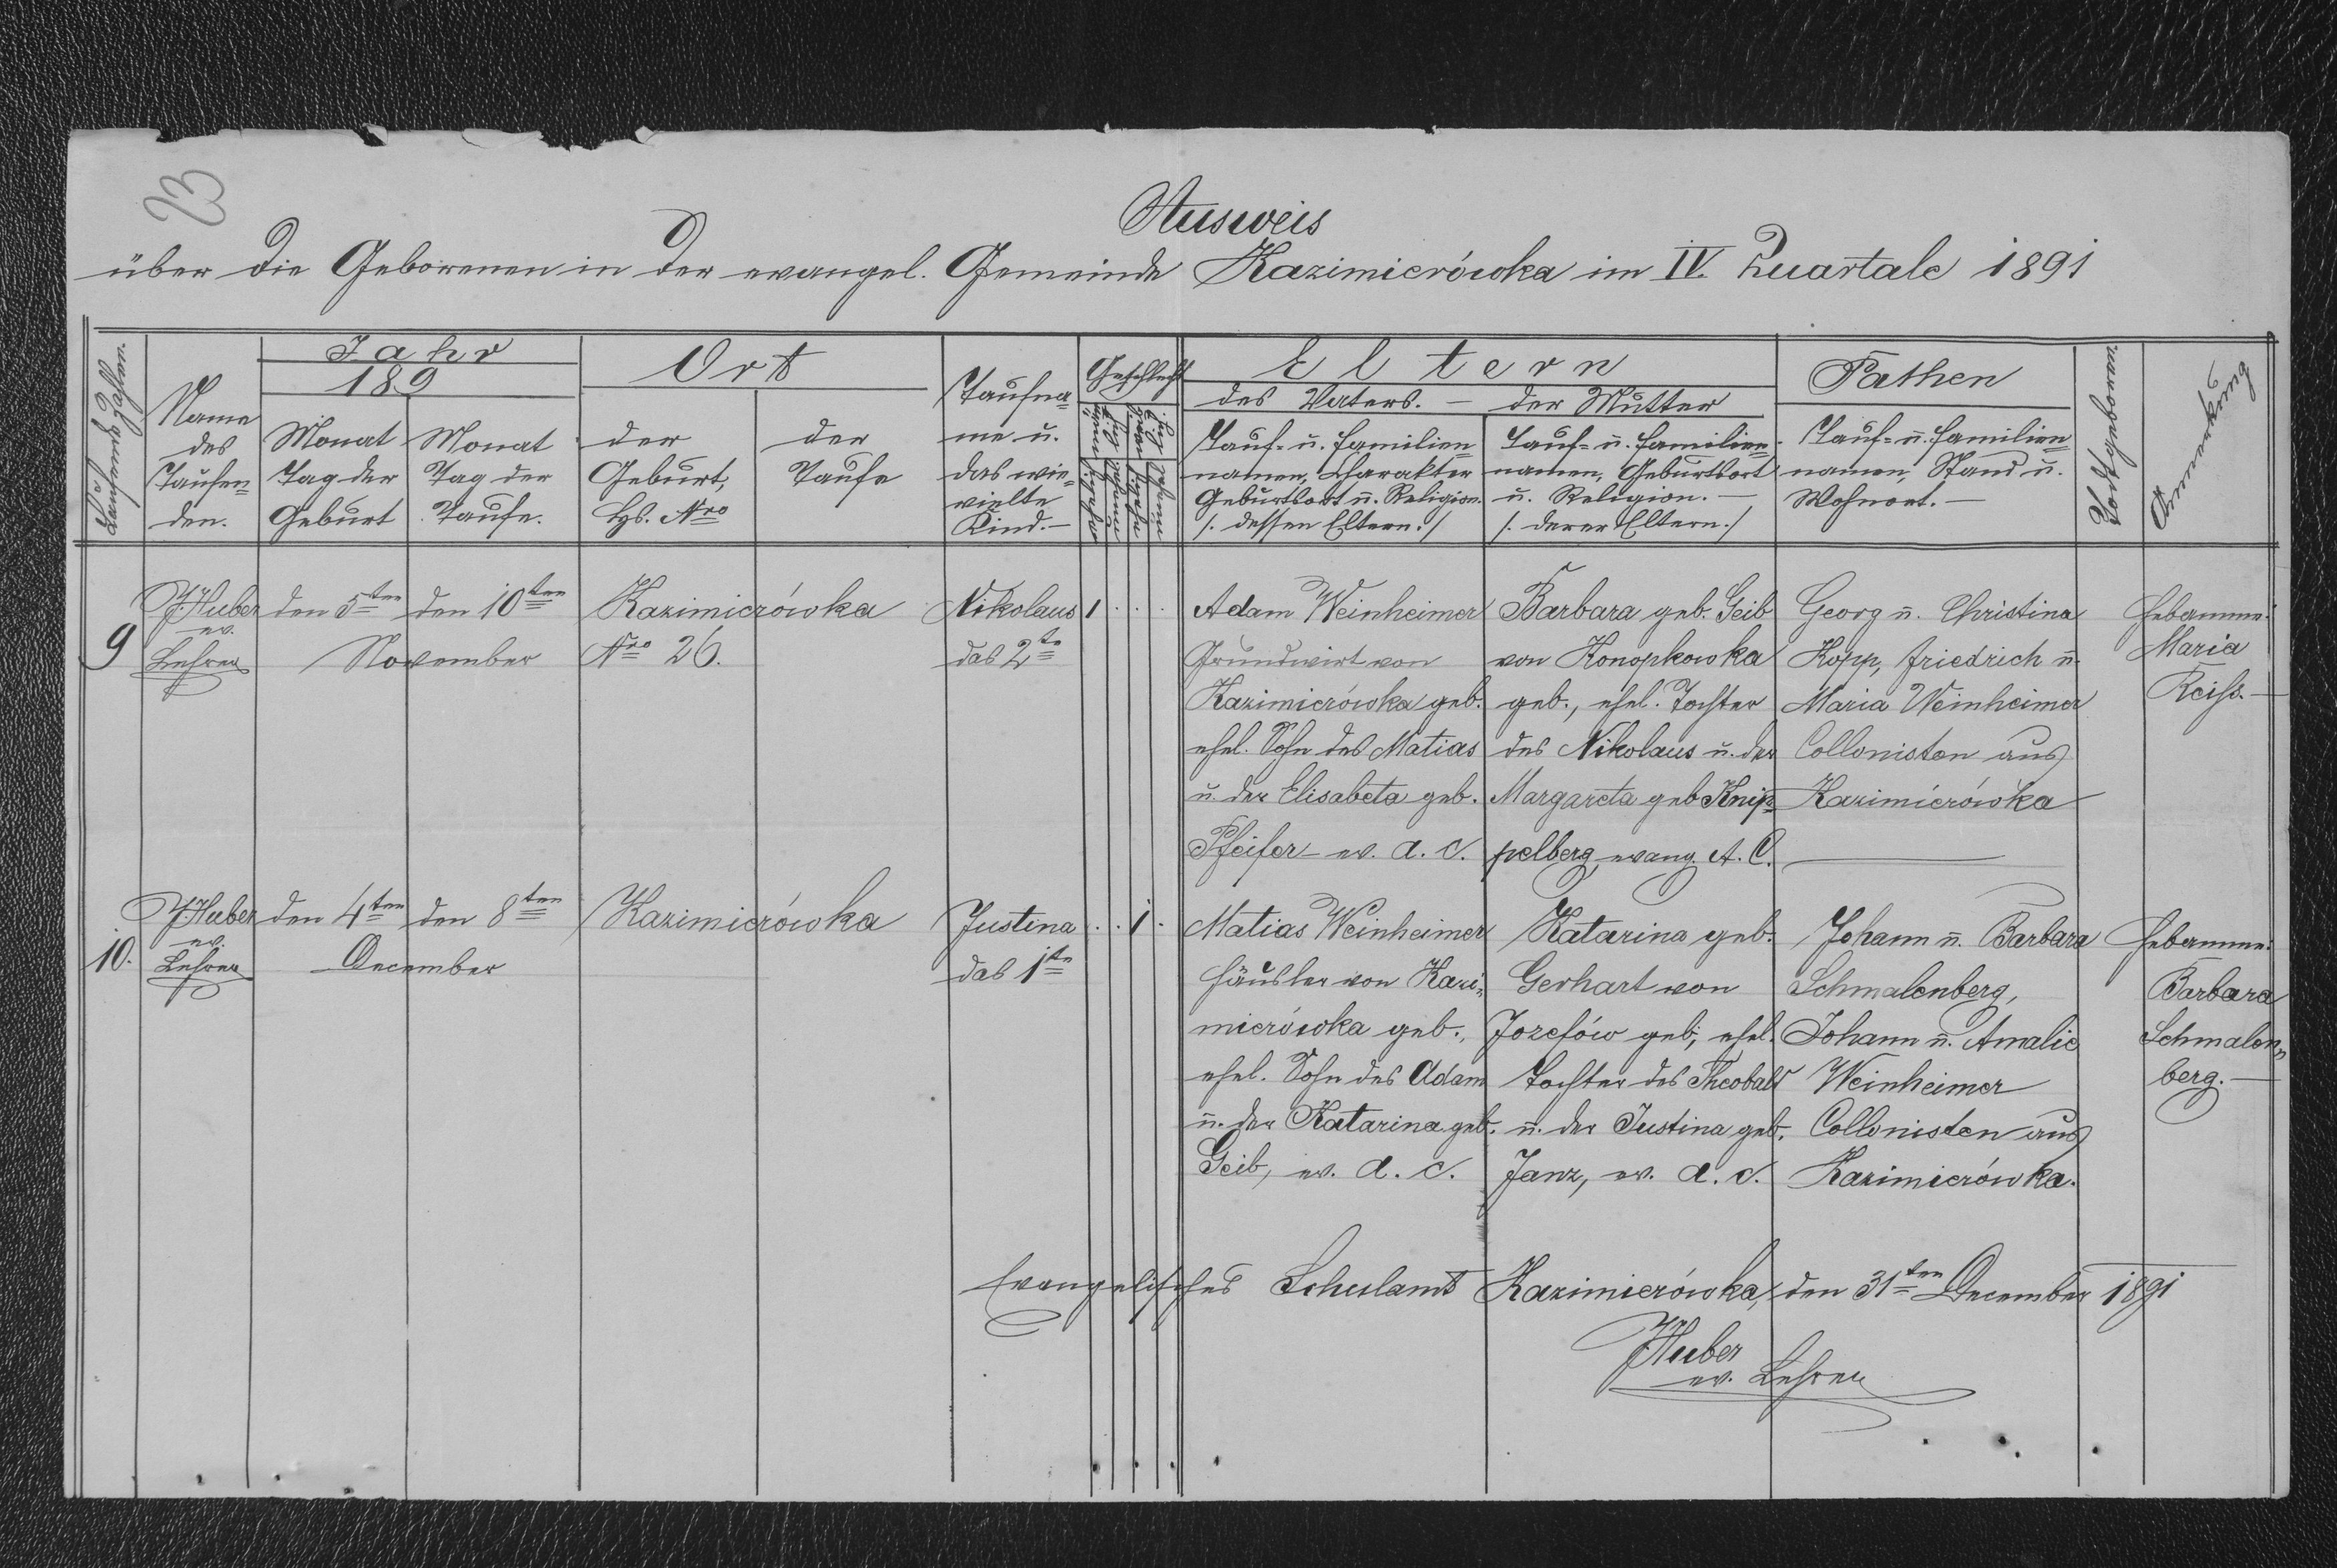 23
Ausweis
über die Geborenen in der evangel. Gemeinde Kazimierówka im IV. Quartale 1891
Laufende Zahlen.
Name
des
Taufen=
den.
Jahr
189
Monat
Tag der
Geburt
Monat
Tag der
Taufe.
Ort
der
Geburt,
Hs. Nro
der
Taufe
Taufna=
me u.
das wie=
vielte
Kind.—
Geschlecht
Eltern
des Vaters. — der Mutter
Tauf= u. Familien=
namen, Charakter
Geburtsort u. Religion.
/. dessen Eltern./
Tauf= u. Familien=
namen, Geburtsort
u. Religion.—
/. derer Eltern./
Pathen
Tauf= u. Familien=
namen, Stand u.
Wohnort.—
Todtgeboren
Anmerkung
9
J. Huber
ev.
Lehrer
den 5ten
den 10ten
November
Kazimierówka
Nro 26.
Nikolaus
das 2te
1
Adam Weinheimer
Grundwirt von
Kazimierówka geb.
ehel. Sohn des Matias
u. der Elisabeta geb.
Pfeifer – ev. A. C.
Barbara geb. Geib
von Konopkowka
geb., ehel. Tochter
des Nikolaus u. der
Margareta geb Knip=
pelberg, evang. A. C.
Georg u. Christina
Kopp, Friedrich u.
Maria Weinheimer
Collonisten aus
Kazimierówka
Hebamme:
Maria
Reiss.—
10.
J. Huber
ev.
Lehrer
den 4ten
den 8ten
December
Kazimierówka
Justina
das 1te
1
Matias Weinheimer
Häusler von Kazi=
mierówka geb.,
ehel. Sohn des Adam
u. der Katarina geb.
Geib, ev. A. C.
Katarina geb.
Gerhart von
Jozefów geb., ehel.
Tochter des Theobald
u. der Justina geb.
Janz, ev. A. C.
Johann u. Barbara
Schmalenberg,
Johann u. Amalie
Weinheimer
Collonisten aus
Kazimierówka.
Hebamme:
Barbara
Schmalen=
berg.—
Evangelisches Schulamt Kazimierówka, den 31ten December 1891
J Huber
ev. Lehrer